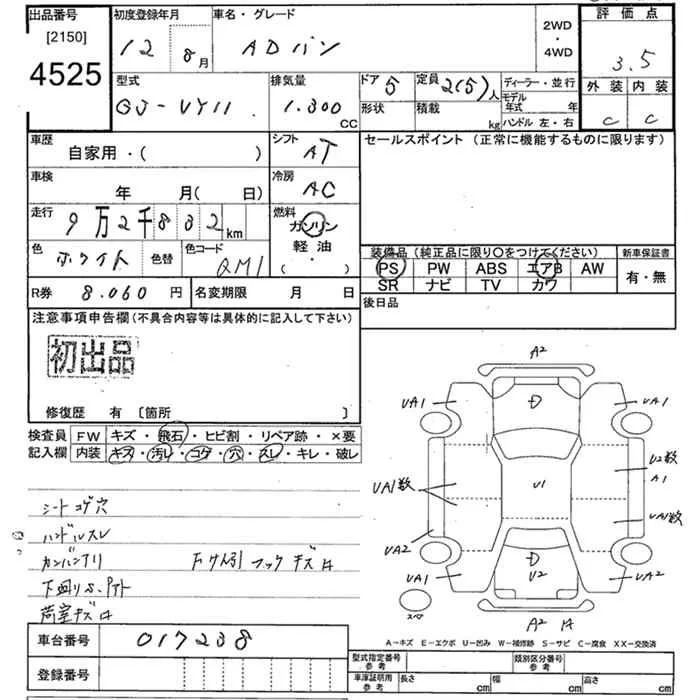 出品番号 初度登録年月 車名・グレード 2WD 評価点
[2150] 12年 8月 ADバン ・ 3.5
4525 4WD 外装 内装
型式 排気量 ドア 5 定員 2(5)人 ディーラー・並行 C C
GJ-VY11 1.300 CC 形状 積載 kg モデル年式 年
ハンドル 左・右
車歴 シフト セールスポイント (正常に機能するものに限ります)
自家用・( ) AT
車検 冷房
年 月( 日) AC
走行 燃料
9万2千832 km ガソリン
色 ホワイト 色替 色コード QM1 軽油
( ・ )
装備品 (純正品に限り○をつけてください) 新車保証書
PS PW ABS エアB AW 有・無
SR ナビ TV カワ
R券 8.060 円 名変期限 月 日 後日品
注意事項申告欄 (不具合内容等は具体的に記入して下さい)
初出品
修復歴 有 〔箇所 〕
検査員 FW キズ・飛石・ヒビ割・リペア跡・×要
記入欄 内装 キズ・汚レ・コゲ・穴・スレ・キレ・破レ
シートコゲ穴
ハンドルスレ
カンバンアリ 下ケ引フックキズ小
下廻りS.アト
荷室キズ小
A2
UA1 D UA1
U2数
A1
UA1数 U1 UA1数
UA2 D
UA1 U2 UA2
スペア A2
A-キズ E-エクボ U-凹み W-補修跡 S-サビ C-腐食 XX-交換済
車台番号 017238
登録番号
型式指定番号 参考 類別区分番号 参考
車庫証明用 参考 長さ cm 幅 cm 高さ cm